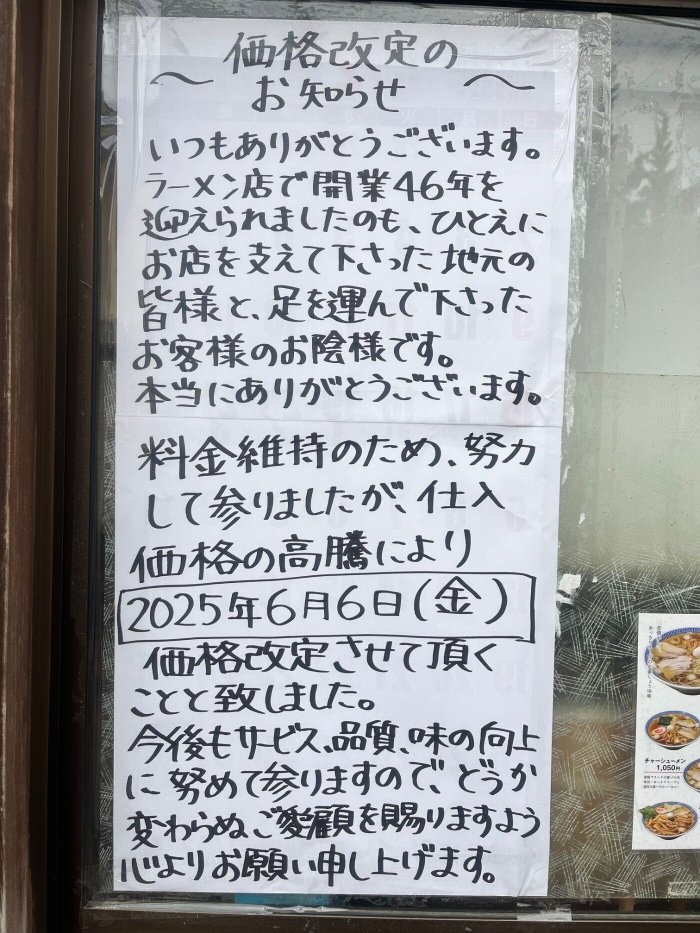 価格改定の
〜お知らせ〜
いつもありがとうございます。
ラーメン店で開業46年を
迎えられましたのも、ひとえに
お店を支えて下さった地元の
皆様と、足を運んで下さった
お客様のお陰様です。
本当にありがとうございます。
料金維持のため、努力
して参りましたが、仕入
価格の高騰により
2025年6月6日(金)
価格改定させて頂く
ことと致しました。
今後もサービス、品質、味の向上
に努めて参りますので、どうか
変わらぬご愛顧を賜りますよう
心よりお願い申し上げます。
チャーシューメン
1,050円